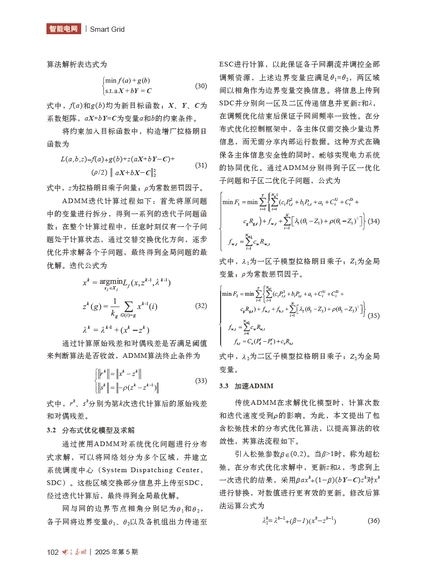 智能电网 | Smart Grid
算法解析表达式为
{min f(a)+g(b)
s.t.aX+bY=C (30)
式中，f(a)和g(b)均为新目标函数；X、Y、C为
系数矩阵，aX+bY=C为变量a和b的约束条件。
将约束加入目标函数中，构造增广拉格朗日
函数为
L(a,b,z)=f(a)+g(b)+z(aX+bY−C)+
(ρ/2)‖aX+bX−C‖₂² (31)
式中，z为拉格朗日乘子向量；ρ为常数惩罚因子。
ADMM迭代计算过程如下：首先将原问题
中的变量进行拆分，得到一系列的迭代子问题函
数；在整个计算过程中，任意时刻仅有一个子问
题处于计算状态，通过交替变换优化方向，逐步
优化并求解各个子问题，最终得到全局问题的最
优解。迭代公式为
xᵏ = argmin Lⱼ(x,zᵏ⁻¹,λᵏ⁻¹)
xⱼ∈Xⱼ
zᵏ(g) = 1/k_g ∑ xᵏ⁻¹(i) (32)
G(i)=g
λᵏ = λᵏ⁻¹+(xᵏ−zᵏ)
通过计算原始残差和对偶残差是否满足阈值
来判断算法是否收敛，ADMM算法终止条件为
{‖rᵏ‖=‖xᵏ−zᵏ‖
‖sᵏ‖=‖−ρ(zᵏ−zᵏ⁻¹)‖ (33)
式中，rᵏ、zᵏ分别为第k次迭代计算后的原始残差
和对偶残差。
3.2 分布式优化模型及求解
通过使用ADMM对系统优化问题进行分布
式求解，可以将网络划分为多个区域，并建立
系统调度中心（System Dispatching Center，
SDC）。这些区域交换部分信息并上传至SDC，
经过迭代计算后，最终得到全局最优解。
网与网的边界节点相角分别记为θ₁和θ₂，
各子网将边界变量θ₁、θ₂以及各机组出力传递至
ESC进行计算，以此保证各子网潮流并调控全部
调频资源，上述边界变量应满足θ₁=θ₂，两区域
间以相角作为边界变量交换信息。将信息上传到
SDC并分别向一区及二区传递信息并更新z和λ，
在调频优化结束后保证子网间频率一致性。在分
布式优化控制框架中，各主体仅需交换少量边界
信息，而无需分享内部运行数据。这种方式在确
保各主体信息安全性的同时，能够实现电力系统
的协同优化。通过ADMM分别得到子区一优化
子问题和子区二优化子问题，公式为
(34)
式中，λ₁为一区子模型拉格朗日乘子；Z₁为全局
变量；ρ为常数惩罚因子。
(35)
式中，λ₂为二区子模型拉格朗日乘子；Z₂为全局
变量。
3.3 加速ADMM
传统ADMM在求解优化模型时，计算次数
和迭代速度受到ρ的影响。为此，本文提出了包
含松弛技术的分布式优化算法，以提高算法的收
敛性，其算法流程如下。
引入松弛参数β∈(0,2)。当β>1时，称为超松
弛。在分布式优化求解中，更新z和λ，考虑到上
一次迭代的结果，采用βaxᵏ+(1−β)(bY−C)zᵏ对xᵏ
进行替换，对数值进行更有效的更新。修改后算
法运算公式为
(36)
102 2025年第5期